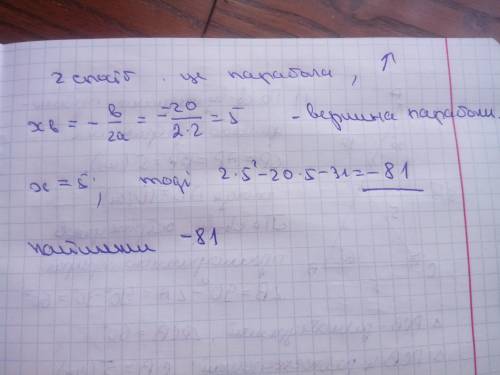 2 спосіб. це парабола, ↑
xв = - в/2a = -20/2·2 = 5 - вершина параболи.
x = 5; тоді 2·5²-20·5-31=-81
найменше -81